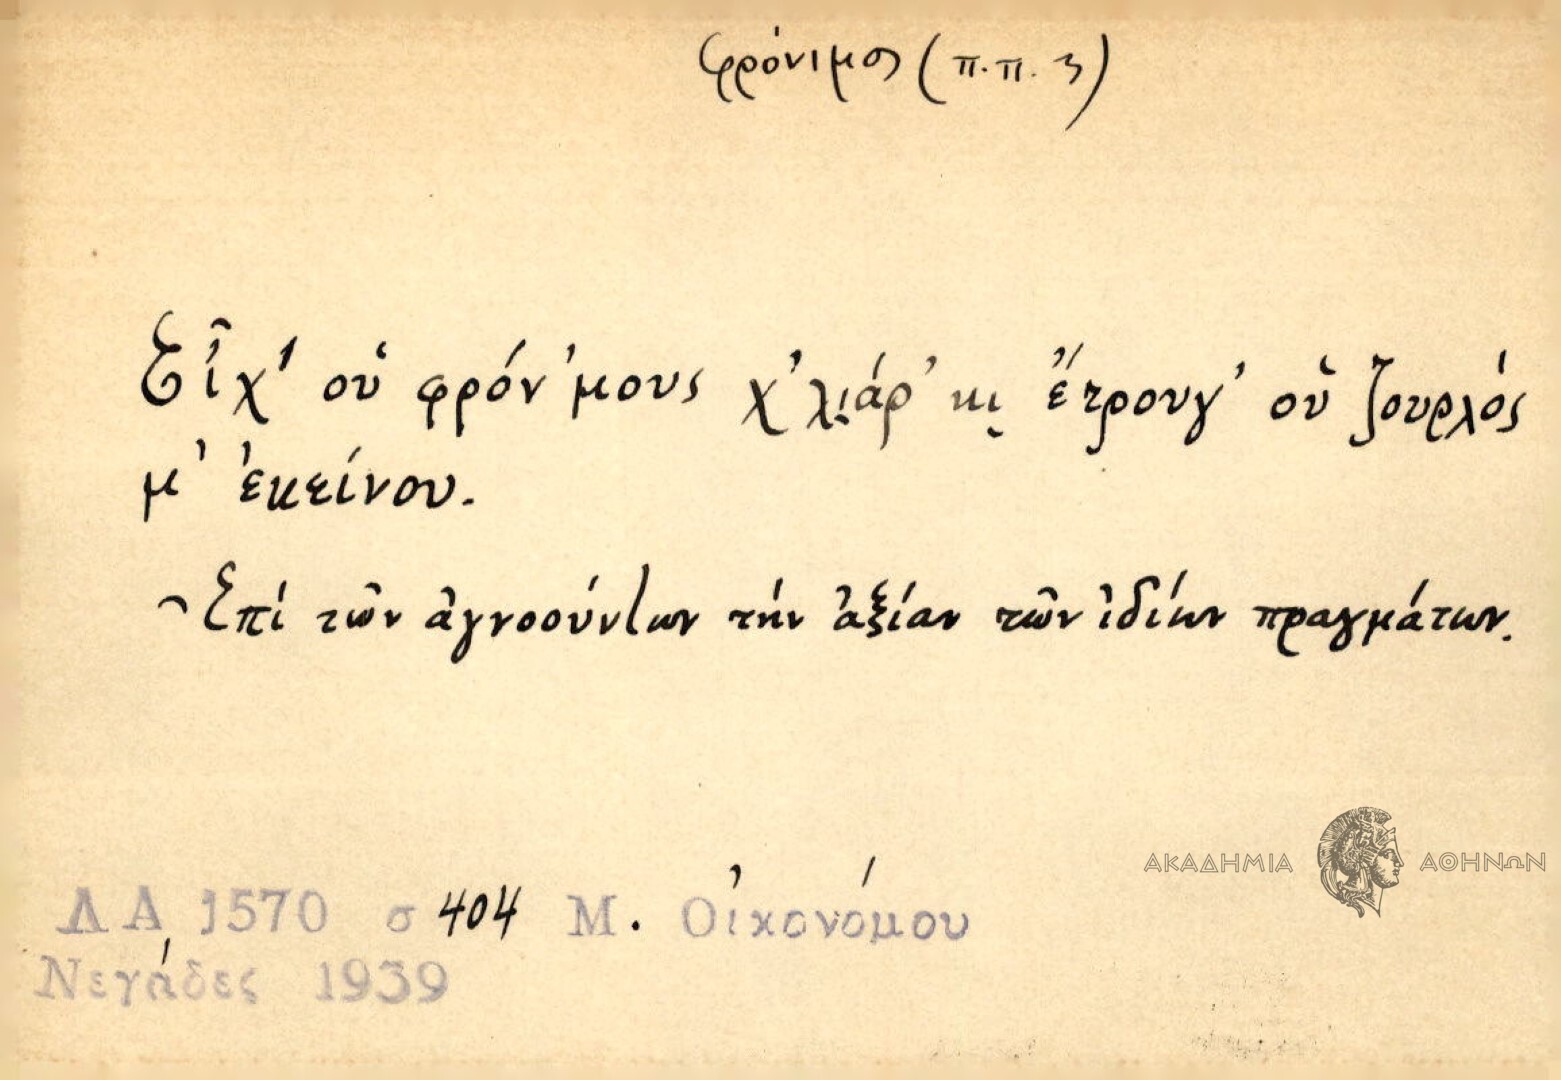 φρόνιμος (π.π. 3)
Εἶχ' οὑ φρόν'μους χ'λι̮άρ' κι̮ ἔτρουγ' οὑ ζουρλός
μ' ἐκείνου.
~ Ἐπί τῶν ἀγνοούντων τήν ἀξίαν τῶν ἰδίων πραγμάτων.
ΑΚΑΔΗΜΙΑ ΑΘΗΝΩΝ
ΛΑ 1570 σ 404 Μ. Οἰκονόμου
Νεγάδες 1939